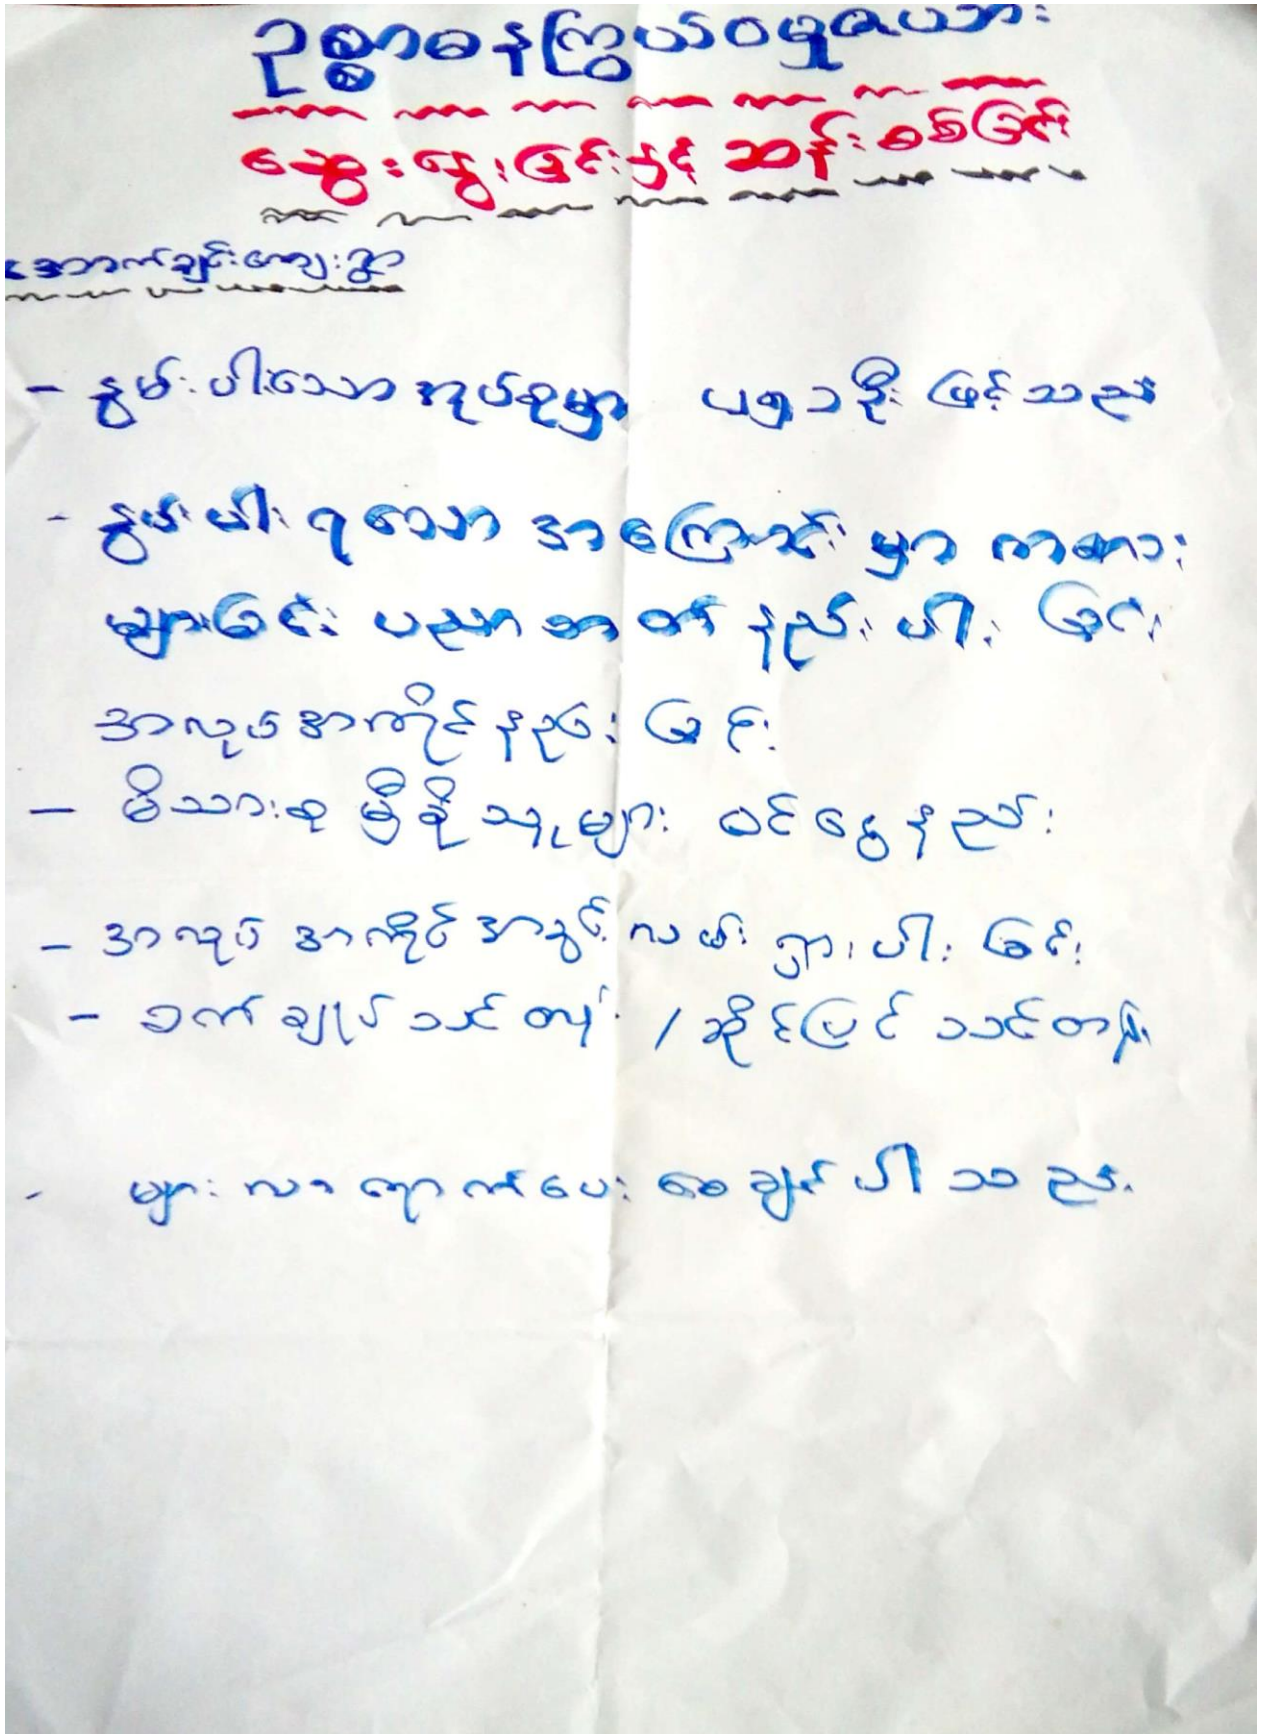 ဥစ္စာဓနကြွယ်ဝမှုဇယား
ဆွေးနွေးခြင်းနှင့် ဆန်းစစ်ခြင်း
အောက်ချင်းကျေးရွာ
- နွမ်းပါးသော အုပ်စုမှာ ၊ ဦး ဖြင့်သည်
- နွမ်းပါး ရသော အကြောင်း မှာ ကလေး
များခြင်း ပညာ တတ် နည်း ပါး ခြင်း
အလုပ်အကိုင် နည်း ခြင်း
- မိသားစု မှီခို သူများ ဝင်ငွေ နည်း
- အလုပ် အကိုင် အခွင့် လမ်း ရှား ပါး ခြင်း
- စက်ချုပ် သင်တန်း / ဆိုင်ပြင် သင်တန်း
- များ လာရောက်ပေး စေချင် ပါ သည်.